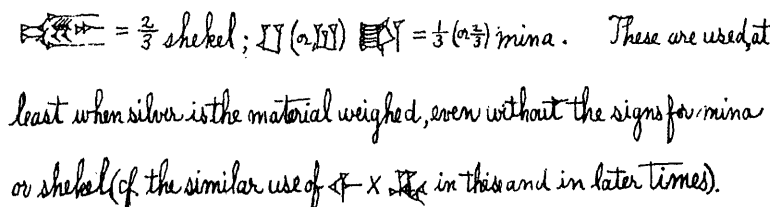 = 2/3 shekel; (or) = 1/3 (or 2/3) mina. These are used, at
least when silver is the material weighed, even without the signs for mina
or shekel (cf. the similar use of X in this and in later times).